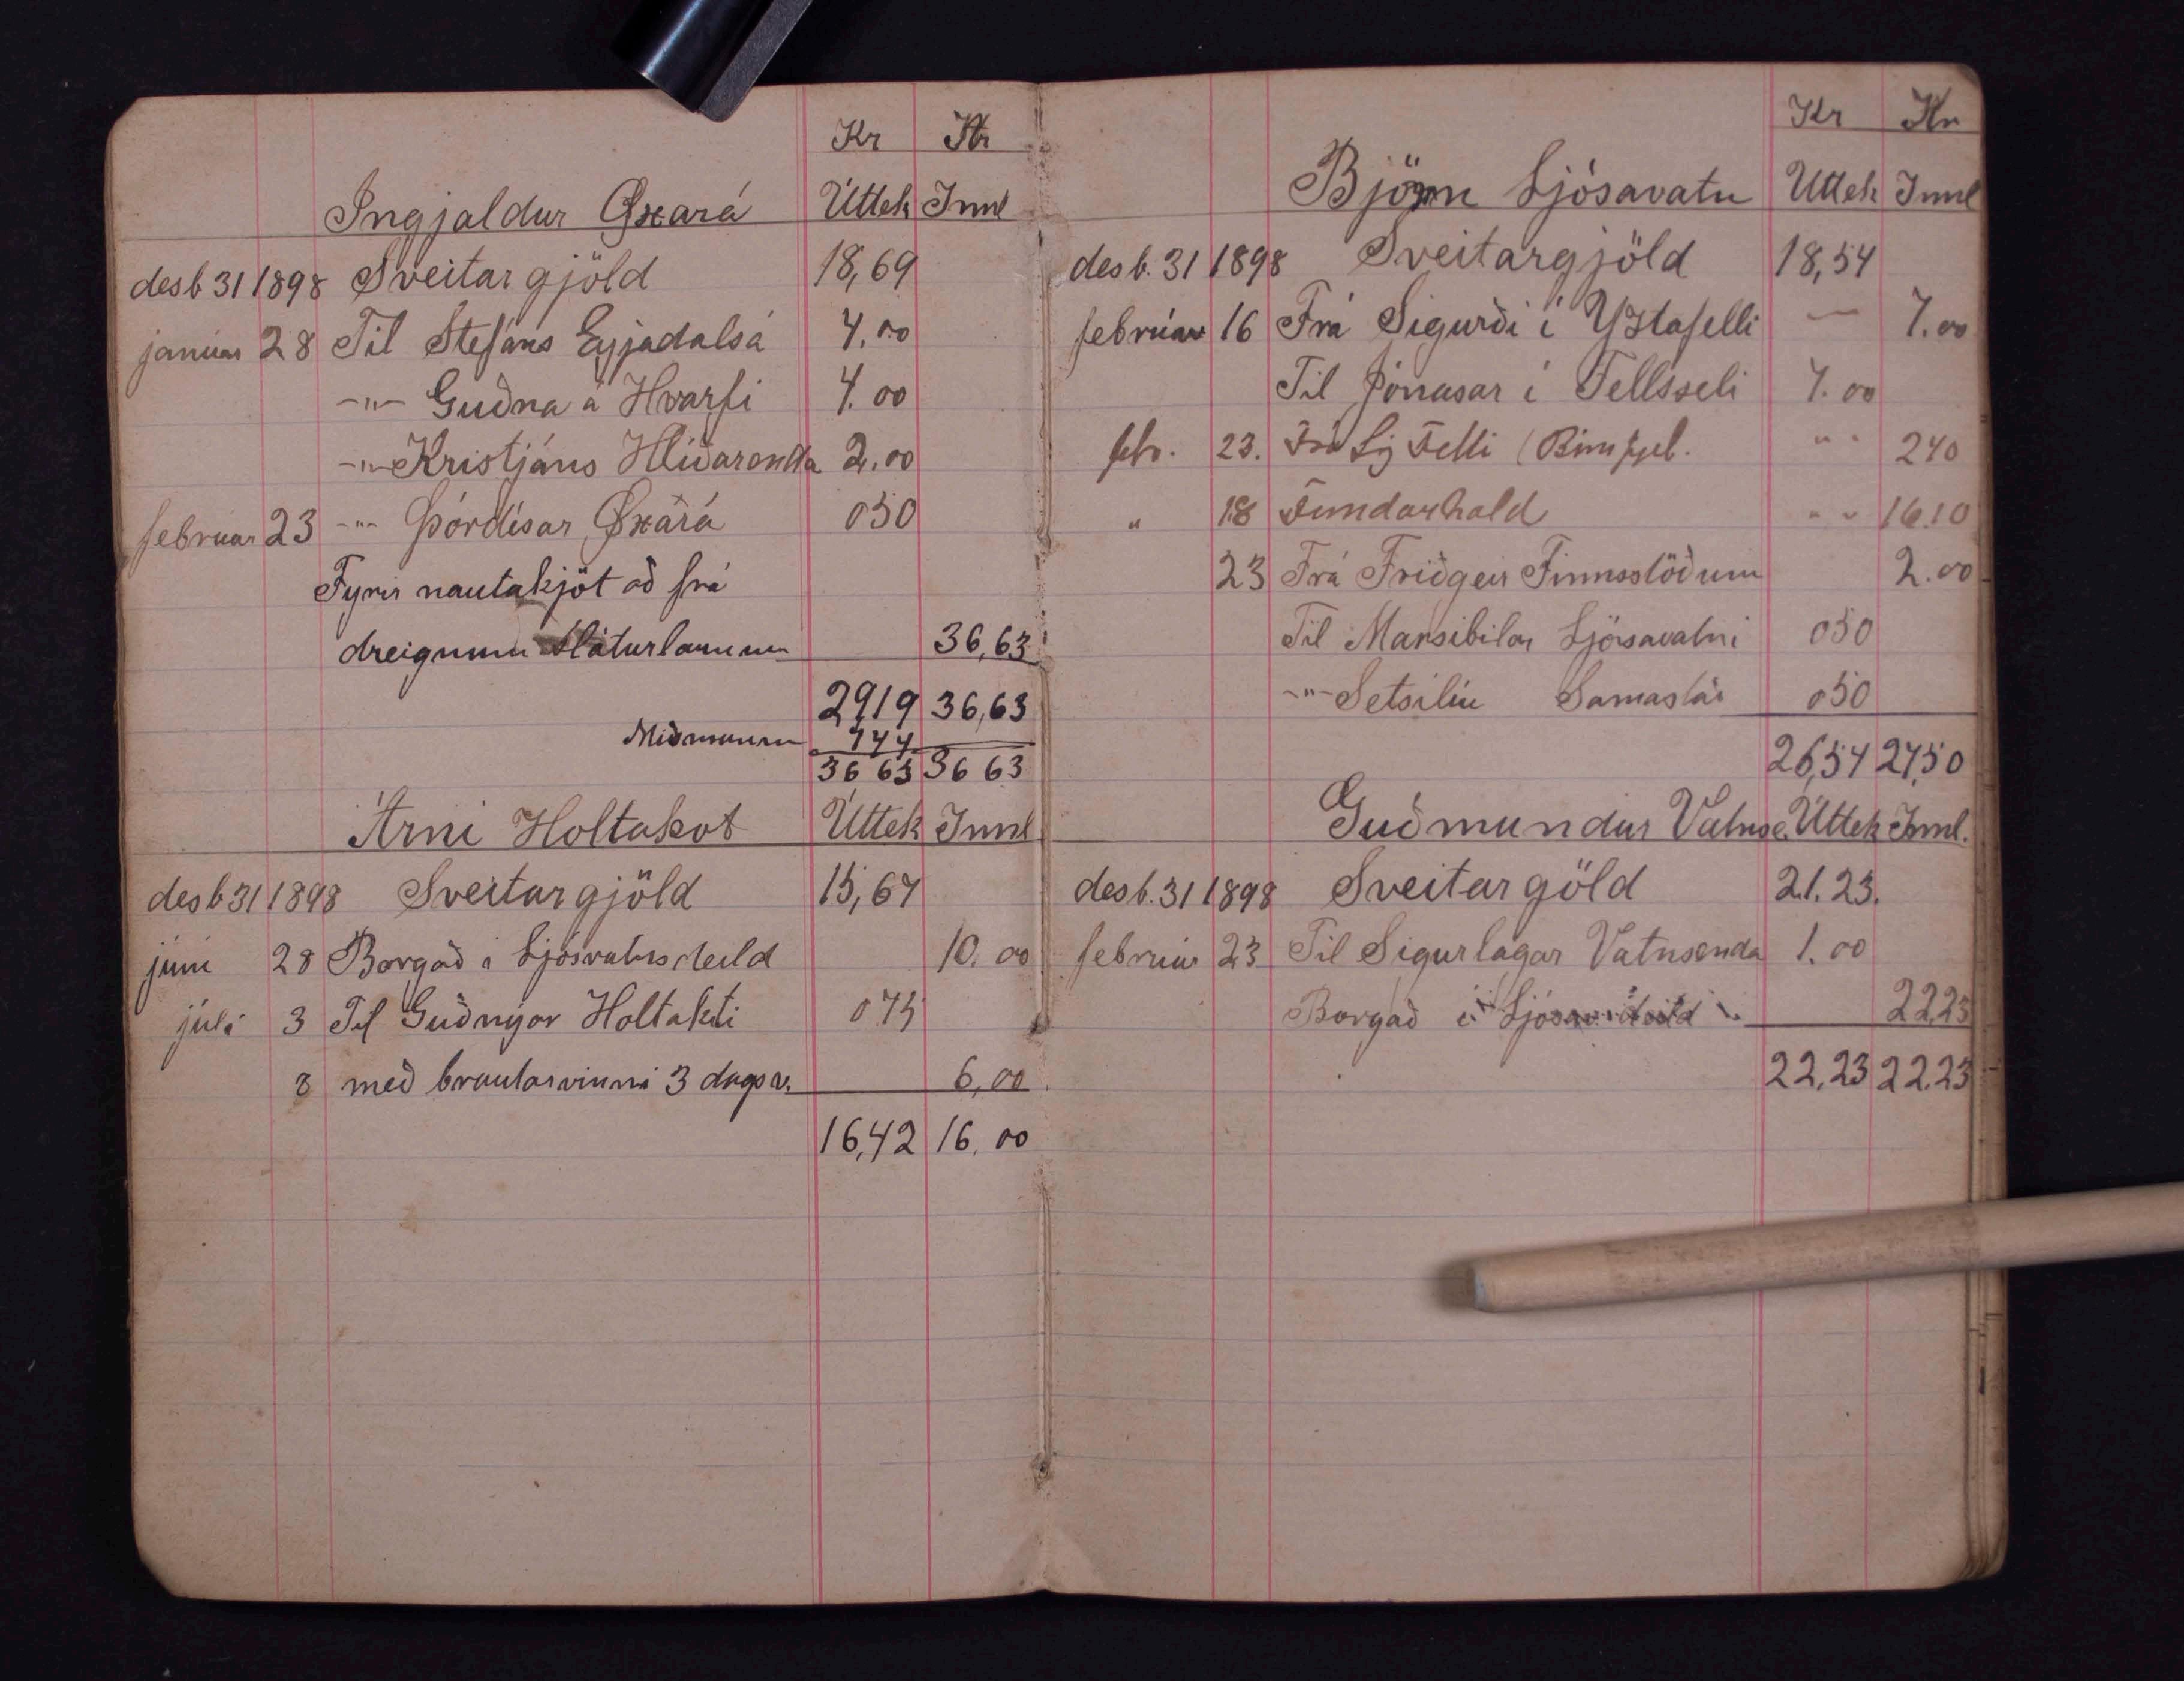 Kr Kr
Ingjaldur Øxará Úttek Innl
desb 31 1898 Sveitargjöld 18,69
januar 28 Til Stefáns Eyjadalsá 4.00
-"- Guðna á Hvarfi 4.00
-"- Kristjáns Hlíðarenda 2.00
februar 23 -"- Þórdísar Øxará 050
Fyrir nautakjöt að frá
dreignum 36,63
2919 36,63
Mismunur 744
36 63 36 63
Árni Holtakot Úttek Innl
desb 31 1898 Sveitargjöld 15,67
júni 28 Borgað í Ljósvatnsdeild 10.00
júlí 3 Til Guðnýar Holtakoti 075
8 með brautarvinnu 3 dagsv. 6,00
16,42 16.00
Kr Kr
Björn Ljósavatn Úttek Innl
desb. 31 1898 Sveitargjöld 18,54
februar 16 Frá Sigurði í Ystafelli — 7.00
Til Jónasar í Fellsseli 7.00
febr. 23. Frá Sig Felli " " 240
" 18 Fundarhald " " 16.10
23 Frá Friðgeir Finnsstöðum 2.00
Til Marsibilar Ljósavatni 050
-"- Setsiliu Samastar 050
26,54 27,50
Guðmundur Vatnse. Úttek Innl.
desb. 31 1898 Sveitargöld 21.23.
februar 23 Til Sigurlagar Vatnsenda 1.00
Borgað í 22,23
22,23 22.23